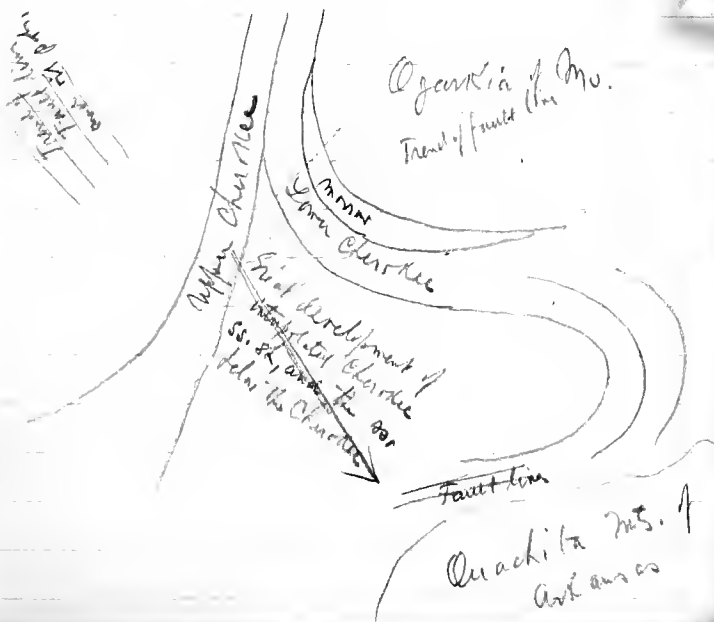 Trend of
Fault lines
over
Ozarkia of Mo.
Trend of fault line
Upper Cherokee
Lower Cherokee
Great development of
interpolated Cherokee
ss. sh, and the ss.
below the Cherokee
Fault lines
Ouachita Mts. of
Arkansas